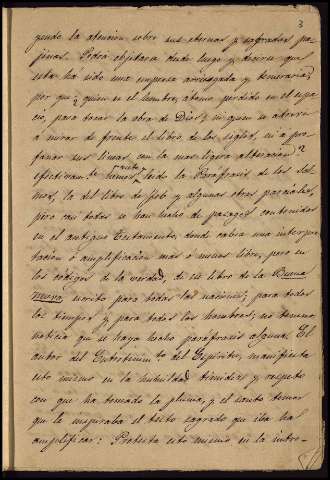 3
yendo la atencion sobre sus eternas y sagradas pa-
jinas. Podrá objetarse desde luego y decirse que
esta ha sido una empresa arriesgada y temeraria;
por que ¿quien es el hombre, átomo perdido en el espa-
cio, para tocar la obra de Dios? ni quien se atreve
á mirar de frente el libro de los siglos, ni a pro-
fanar sus lineas con la mas ligera alteracion?
Efectivamte. hemos leido la Parafrasis de los Sal-
mos, la del libro de Job y algunas otras parciales,
pero casi todas se han hecho de pasages contenidos
en el antiguo Testamento, donde cabia una interpre-
tacion ó amplificacion mas ó menos libre, pero en
los códigos de la verdad, de ese libro de la Buena
nueva, escrito para todas las naciones, para todos
los tiempos y para todos los hombres, no tenemos
noticia que se haya hecho parafrasis alguna. El
autor del Entretenimto. del Espíritu, manifiesta
esto mismo en la humildad, timidez y respeto
con que ha tomado la pluma, y el santo temor
que le inspiraba el testo sagrado que iba ha
amplificar: Protesta esto mismo en la intro-